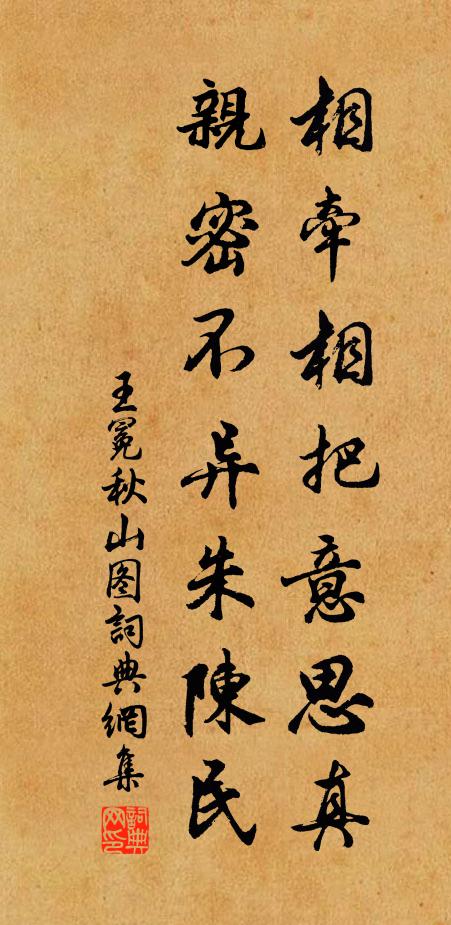 相牽相把意思真
親密不异朱陳民
王冕秋山图詞典網集
詞典网印